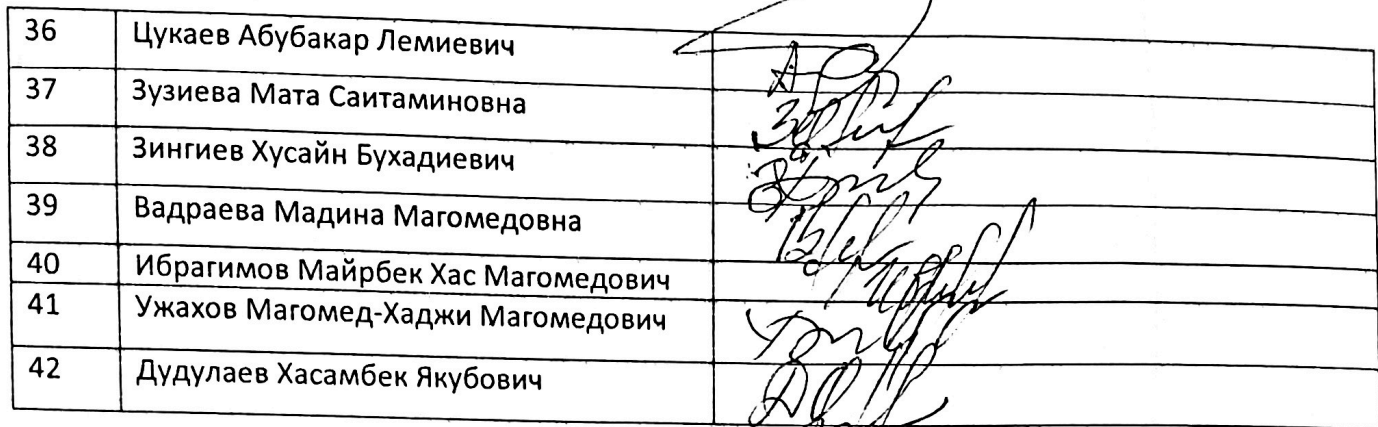 36 Цукаев Абубакар Лемиевич
37 Зузиева Мата Саитаминовна
38 Зингиев Хусайн Бухадиевич
39 Вадраева Мадина Магомедовна
40 Ибрагимов Майрбек Хас Магомедович
41 Ужахов Магомед-Хаджи Магомедович
42 Дудулаев Хасамбек Якубович